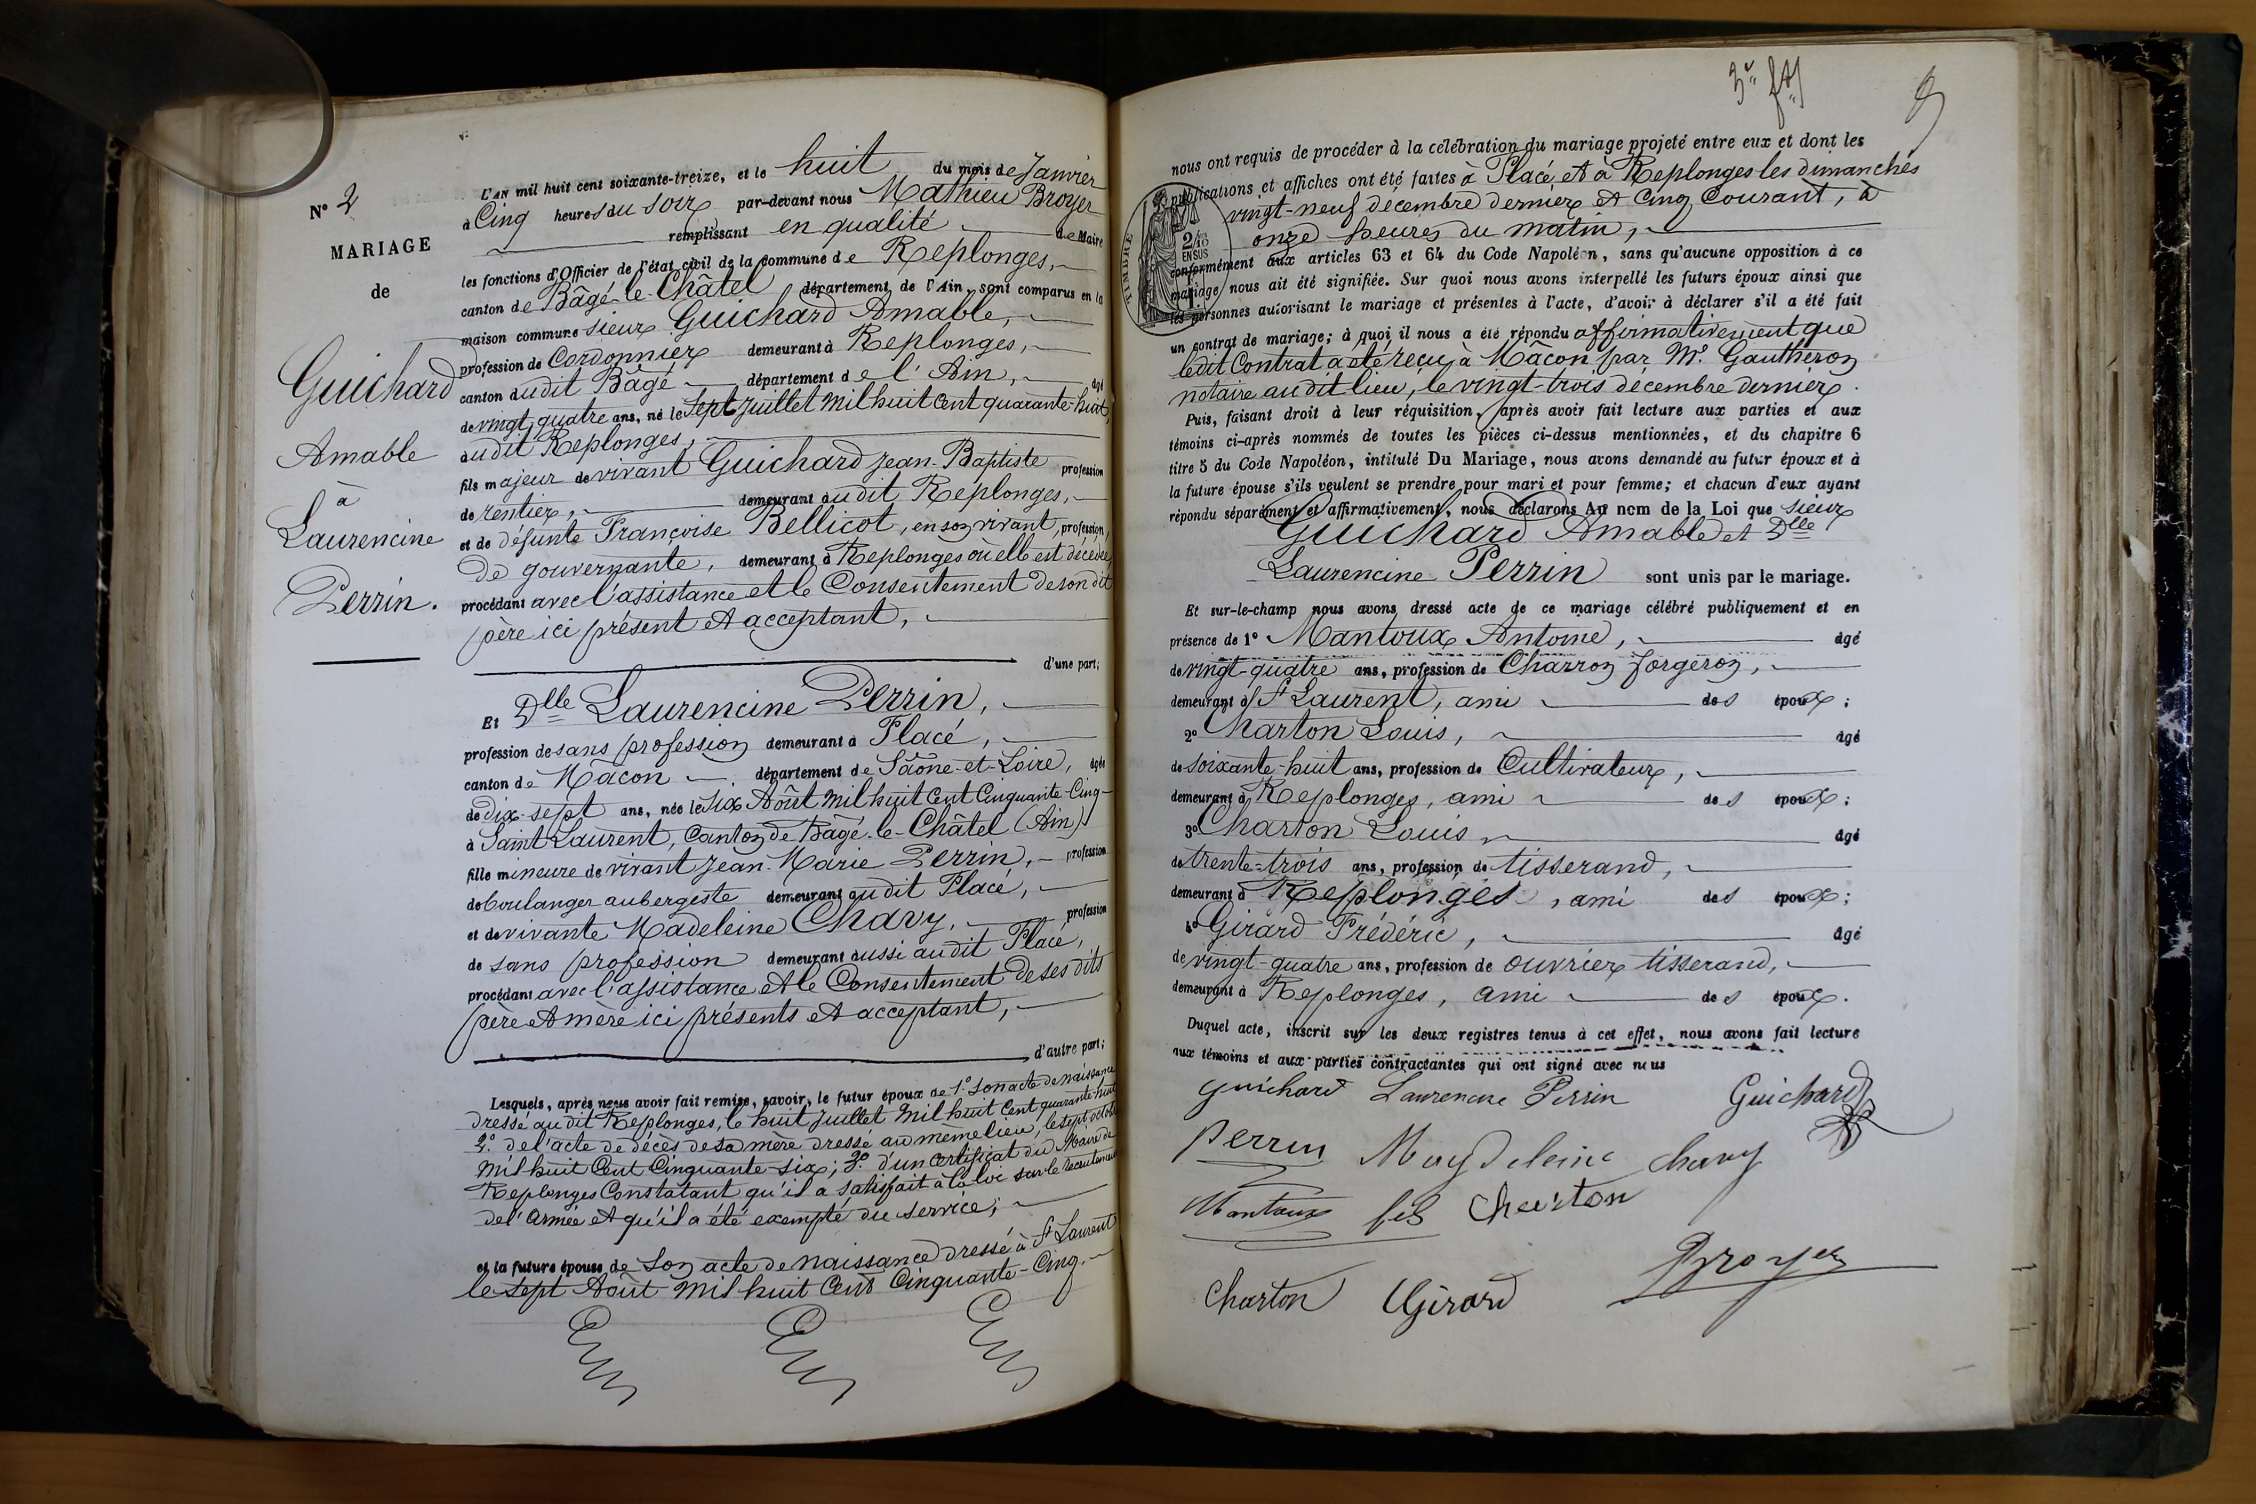 N° 2
MARIAGE
de
Guichard
Amable
à
Laurencine
Perrin.
L'AN mil huit cent soixante-treize, et le huit du mois de Janvier
à Cinq heures du soir par-devant nous Mathieu Broyer
remplissant en qualité de Maire
les fonctions d'Officier de l'état civil de la commune de Replonges,
canton de Bâgé-le-Châtel département de l'Ain, sont comparus en la
maison commune sieur Guichard Amable,
profession de Cordonnier demeurant à Replonges,
canton dudit Bâgé département de l'Ain, âgé
de vingt quatre ans, né le Sept Juillet mil huit cent quarante-huit,
audit Replonges,
fils majeur de vivant Guichard Jean-Baptiste profession
de rentier, demeurant audit Replonges,
et de défunte Françoise Bellicot, en son vivant, profession,
De gouvernante, demeurant à Replonges où elle est décédée,
procédant avec l'assistance et le Consentement de son dit
père ici présent et acceptant,
d'une part;
Et Dlle Laurencine Perrin,
profession de sans profession demeurant à Placé,
canton de Mâcon département de Saône-et-Loire, âgée
de dix-sept ans, née le Six Août mil huit Cent Cinquante-Cinq
à Saint Laurent, Canton de Bâgé-le-Châtel (Ain)
fille mineure de vivant Jean-Marie Perrin, profession
de boulanger aubergeste demeurant audit Placé,
et de vivante Madeleine Chavy, profession
de sans profession demeurant aussi audit Placé,
procédant avec l'assistance et le Consentement de ses dits
père et mère ici présents et acceptant,
d'autre part;
Lesquels, après nous avoir fait remise, savoir, le futur époux de 1° son acte de naissance
dressé audit Replonges, le huit Juillet mil huit Cent quarante-huit
2° de l'acte de décès de sa mère dressé au même lieu, le sept octobre
mil huit Cent Cinquante-six; 3° d'un certificat du Maire de
Replonges Constatant qu'il a satisfait à la loi sur le recrutement
de l'armée et qu'il a été exempté du service;
et la future épouse de Son acte de naissance dressé à St Laurent
le sept Août mil huit Cent Cinquante-Cinq.
3e
nous ont requis de procéder à la célébration du mariage projeté entre eux et dont les
publications et affiches ont été faites à Placé, et à Replonges les dimanches
vingt-neuf décembre dernier et Cinq Courant, à
onze heures du matin,
TIMBRE
conformément aux articles 63 et 64 du Code Napoléon, sans qu'aucune opposition à ce
mariage nous ait été signifiée. Sur quoi nous avons interpellé les futurs époux ainsi que
les personnes autorisant le mariage et présentes à l'acte, d'avoir à déclarer s'il a été fait
un contrat de mariage; à quoi il nous a été répondu affirmativement que
ledit Contrat a été reçu à Mâcon par Me Gautheron
notaire audit lieu, le vingt-trois décembre dernier.
Puis, faisant droit à leur réquisition, après avoir fait lecture aux parties et aux
témoins ci-après nommés de toutes les pièces ci-dessus mentionnées, et du chapitre 6
titre 5 du Code Napoléon, intitulé Du Mariage, nous avons demandé au futur époux et à
la future épouse s'ils veulent se prendre pour mari et pour femme; et chacun d'eux ayant
répondu séparément et affirmativement, nous déclarons Au nom de la Loi que Sieur
Guichard Amable et Dlle
Laurencine Perrin sont unis par le mariage.
Et sur-le-champ nous avons dressé acte de ce mariage célébré publiquement et en
présence de 1° Mantoux Antoine, âgé
de vingt-quatre ans, profession de Charron forgeron,
demeurant à St Laurent, ami des époux;
2° Charton Louis, âgé
de soixante-huit ans, profession de Cultivateur,
demeurant à Replonges, ami des époux;
3° Charton Louis, âgé
de trente-trois ans, profession de tisserand,
demeurant à Replonges, ami des époux;
4° Girard Frédéric, âgé
de vingt-quatre ans, profession de ouvrier tisserand,
demeurant à Replonges, ami des époux.
Duquel acte, inscrit sur les deux registres tenus à cet effet, nous avons fait lecture
aux témoins et aux parties contractantes qui ont signé avec nous
guichard Laurencine Perrin Guichard
Perrin Magdeleine chavy
Mantoux fils Charton
Broyer
Charton Girard